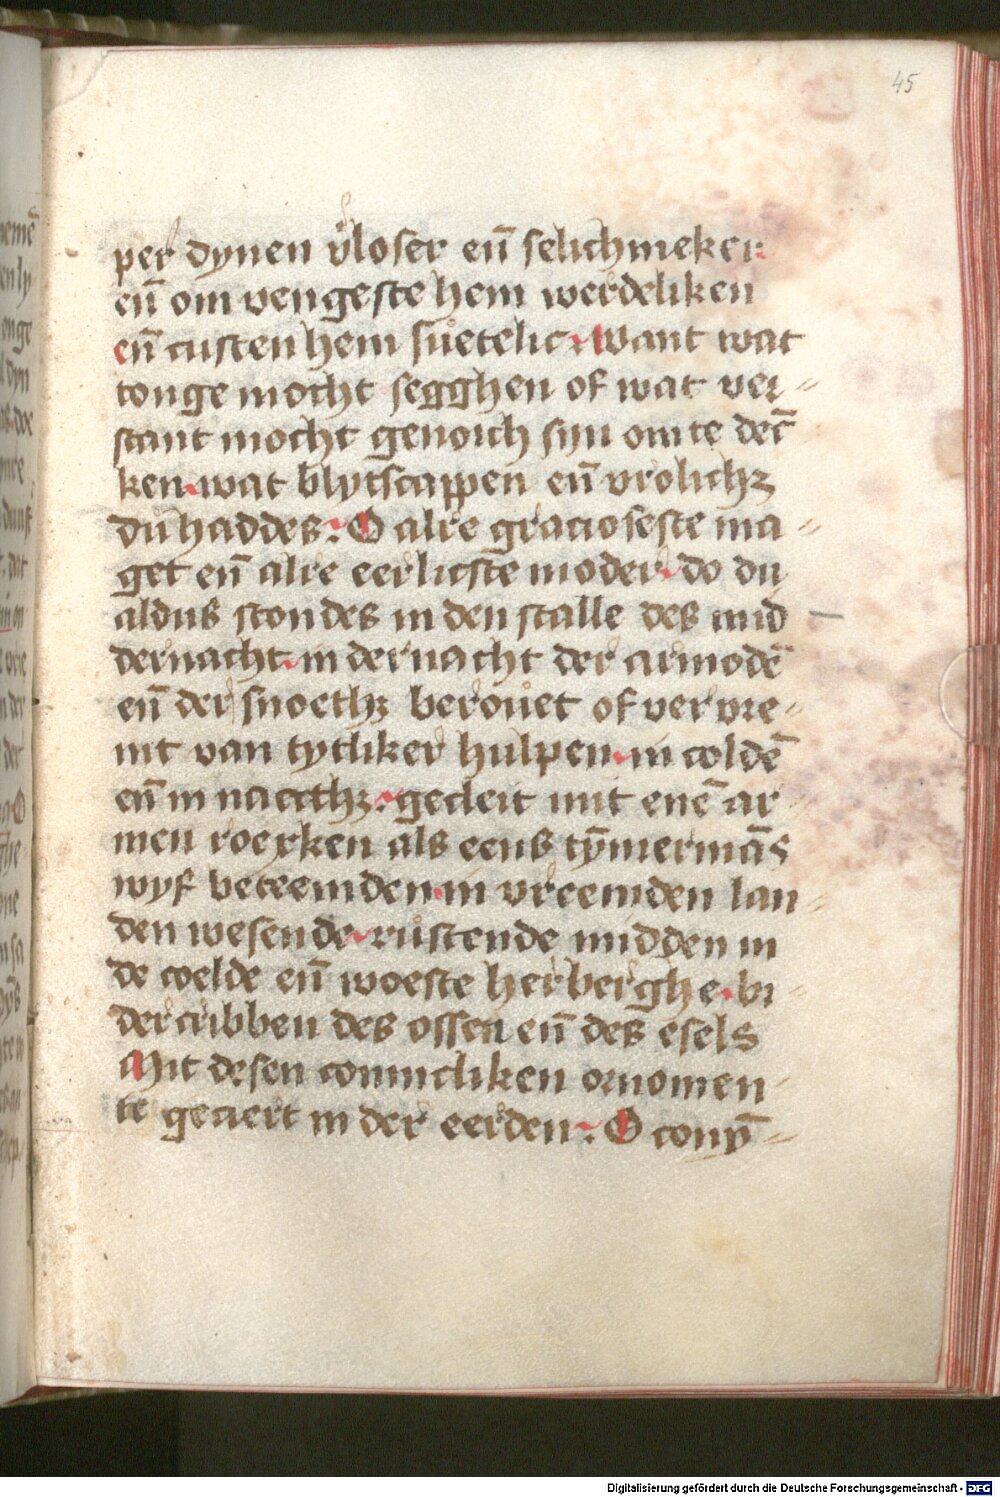 45
per dynen v̄loser en̄ selichmeker·
en̄ om vengeste hem werdeliken
en̄ custen hem suetelic· Want wat
tonge mocht segghen of wat ver-
stant mocht genoich syn om te dec̄
ken· wat blytscappen en̄ vrolichꝫ
du haddes: O alre gracioseste ma-
get en̄ alre eerlicste moder· do du
aldus stondes in den stalle des mid-
dernacht· in der nacht der armodē
en̄ der snoethꝫ berouet of ver vre-
mt van tytliker hulpen· in coldē
en̄ in naecthꝫ· gecleit mit enē ar-
men roexken als eens tȳmermās
wyf beteemden· in vreemden lan-
den wesende· rustende midden in
de coelde en̄ woeste herberghe· bi-
der cribben des ossen en̄ des esels
Mit desen conincliken ornomen-
te geciert in der eerden·: O conȳ-
Digitalisierung gefördert durch die Deutsche Forschungsgemeinschaft - DFG